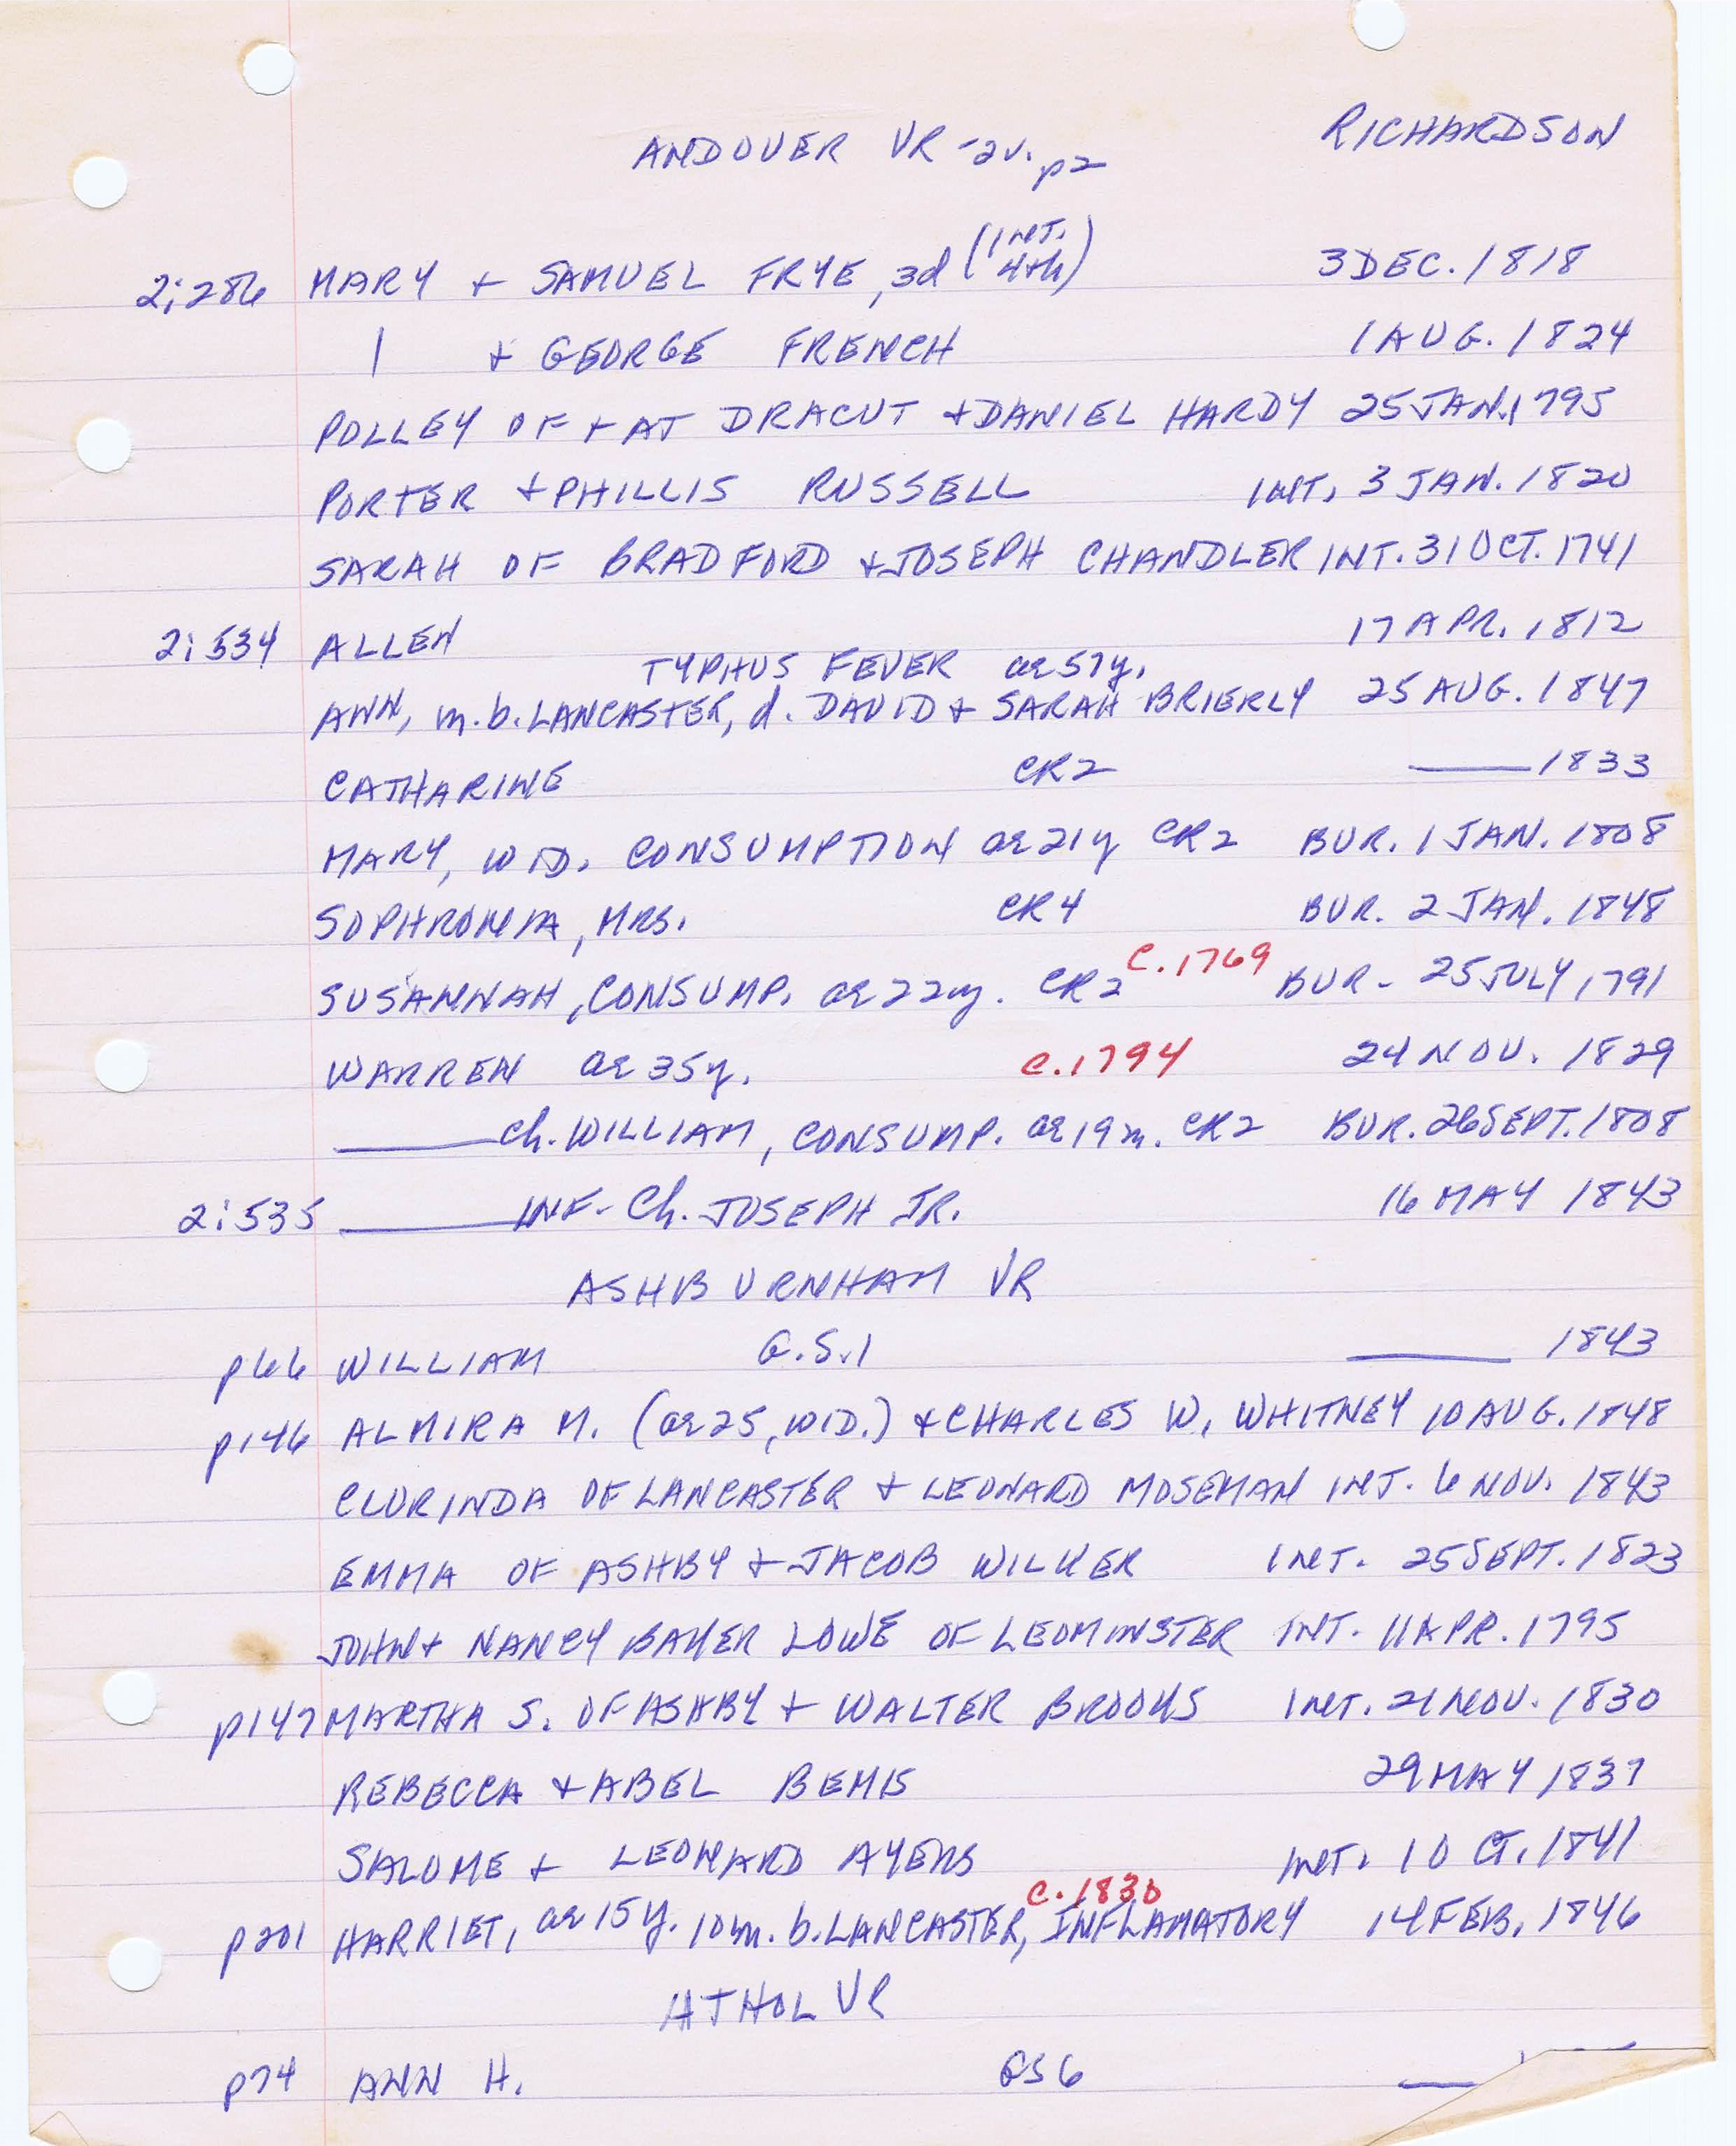 RICHARDSON
ANDOVER VR -2v. p2
2:286 MARY + SAMUEL FRYE, 3d (INT. 4th) 3 DEC. 1818
| + GEORGE FRENCH 1 AUG. 1824
POLLEY OF + AT DRACUT + DANIEL HARDY 25 JAN. 1795
PORTER + PHILLIS RUSSELL INT. 3 JAN. 1820
SARAH OF BRADFORD + JOSEPH CHANDLER INT. 31 OCT. 1741
2:534 ALLEN 17 APR. 1812
TYPHUS FEVER ae 57y.
ANN, m. b. LANCASTER, d. DAVID + SARAH BRIERLY 25 AUG. 1847
CATHARINE CR2 ——— 1833
MARY, WID. CONSUMPTION ae 21y CR2 BUR. 1 JAN. 1808
SOPHRONIA, MRS. CR4 BUR. 2 JAN. 1848
SUSANNAH, CONSUMP. ae 22y. CR2 C. 1769 BUR - 25 JULY, 1791
WARREN ae 35y. C. 1794 24 NOV. 1829
——— Ch. WILLIAM, CONSUMP. ae 19 m. CR2 BUR. 26 SEPT. 1808
2:535 ——— INF - Ch. JOSEPH JR. 16 MAY 1843
ASHBURNHAM VR
p66 WILLIAM G.S.1 ——— 1843
p146 ALMIRA M. (ae 25, WID.) + CHARLES W. WHITNEY 10 AUG. 1848
CLORINDA OF LANCASTER + LEONARD MOSEMAN INT. 6 NOV. 1843
EMMA OF ASHBY + JACOB WILKER INT. 25 SEPT. 1823
JOHN + NANCY BAKER LOWE OF LEOMINSTER INT. 11 APR. 1795
p147 MARTHA S. OF ASHBY + WALTER BROOKS INT. 21 NOV. 1830
REBECCA + ABEL BEMIS 29 MAY 1837
SALOME + LEONARD AYERS INT. 1 OCT. 1841
C. 1830
p201 HARRIET, ae 15 y. 10 m. b. LANCASTER, INFLAMATORY 14 FEB. 1846
ATHOL VR
p74 ANN H. GS6 ———